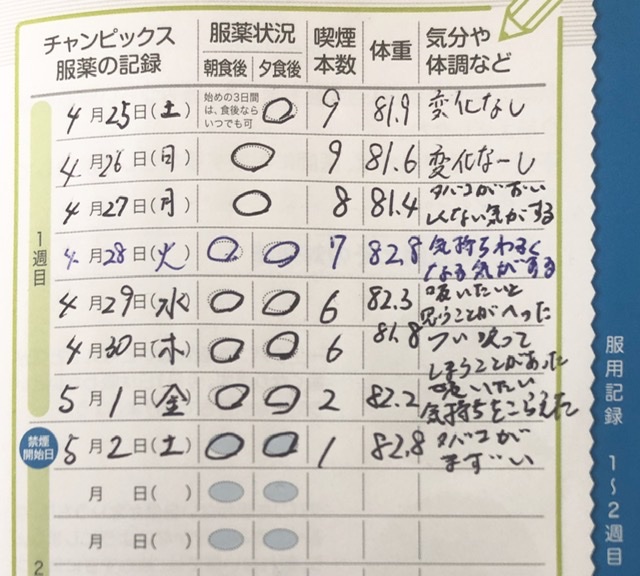 チャンピックス
服薬の記録
服薬状況
朝食後 夕食後
喫煙
本数
体重
気分や
体調など
1週目
4月25日(土) 始めの3日間
は、食後なら
いつでも可 ○ 9 81.9 変化なし
4月26日(日) ○ 9 81.6 変化なーし
4月27日(月) ○ 8 81.4 タバコがおい
しくない気がする
4月28日(火) ○ ○ 7 82.8 気持ちわるく
なる気がする
4月29日(水) ○ ○ 6 82.3 吸いたいと
思うことがへった
4月30日(木) ○ ○ 6 81.8 つい吸って
しまうことがあった
5月1日(金) ○ ○ 2 82.2 吸いたい
気持ちをこらえた
禁煙
開始日
5月2日(土) ○ ○ 1 82.8 タバコが
まずい
月 日( )
月 日( )
2
服用記録 1〜2週目